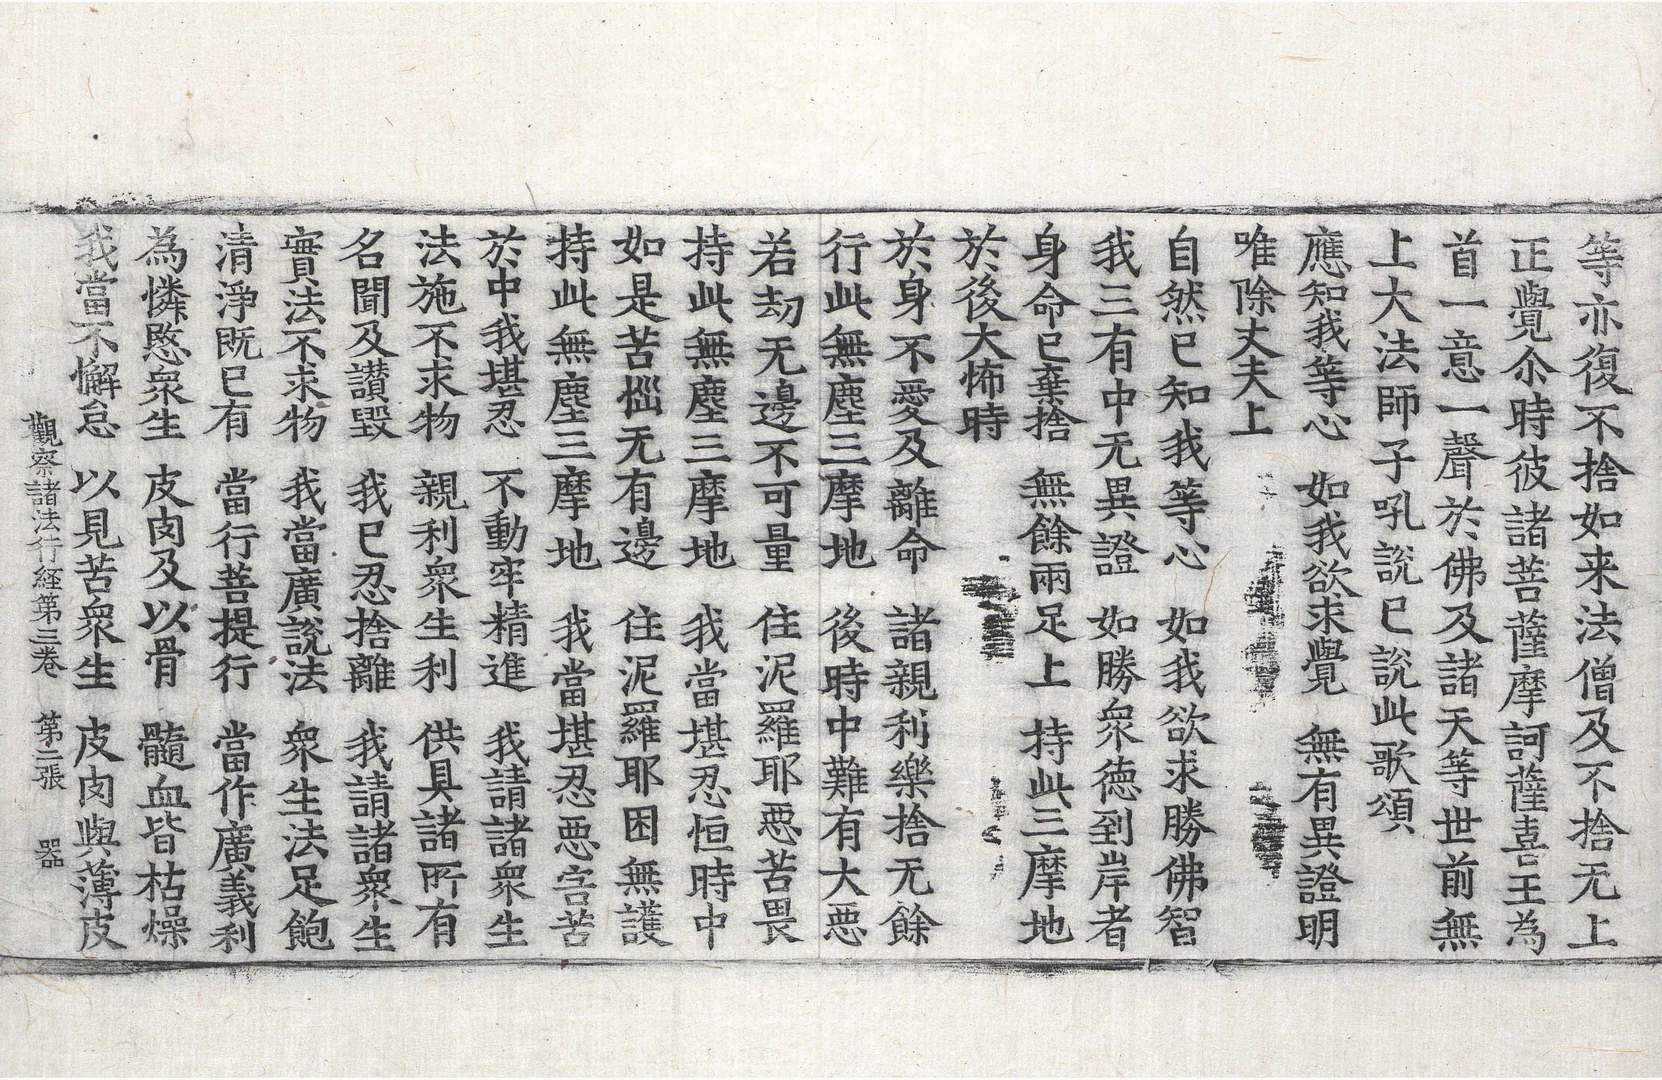 等亦復不捨如来法僧及不捨无上
正覺尒時彼諸菩薩摩訶薩喜王為
首一意一聲於佛及諸天等世前無
上大法師子吼說已說此歌頌
應知我等心　如我欲求覺　無有異證明
唯除丈夫上
自然已知我等心　如我欲求勝佛智
我三有中无異證　如勝衆德到岸者
身命已棄捨　無餘兩足上　持此三摩地
於後大怖時
於身不愛及離命　諸親利樂捨无餘
行此無塵三摩地　後時中難有大惡
若劫无邊不可量　住泥羅耶惡苦畏
持此無塵三摩地　我當堪忍恒時中
如是苦惱无有邊　住泥羅耶困無護
持此無塵三摩地　我當堪忍惡害苦
於中我堪忍　不動牢精進　我請諸衆生
法施不求物　親利衆生利　供具諸所有
名聞及讃毀　我已忍捨離　我請諸衆生
實法不求物　我當廣說法　衆生法足飽
清淨既已有　當行菩提行　當作廣義利
為憐愍衆生　皮肉及以骨　髓血皆枯燥
我當不懈怠　以見苦衆生　皮肉與薄皮
觀察諸法行経第三卷　第二張　器